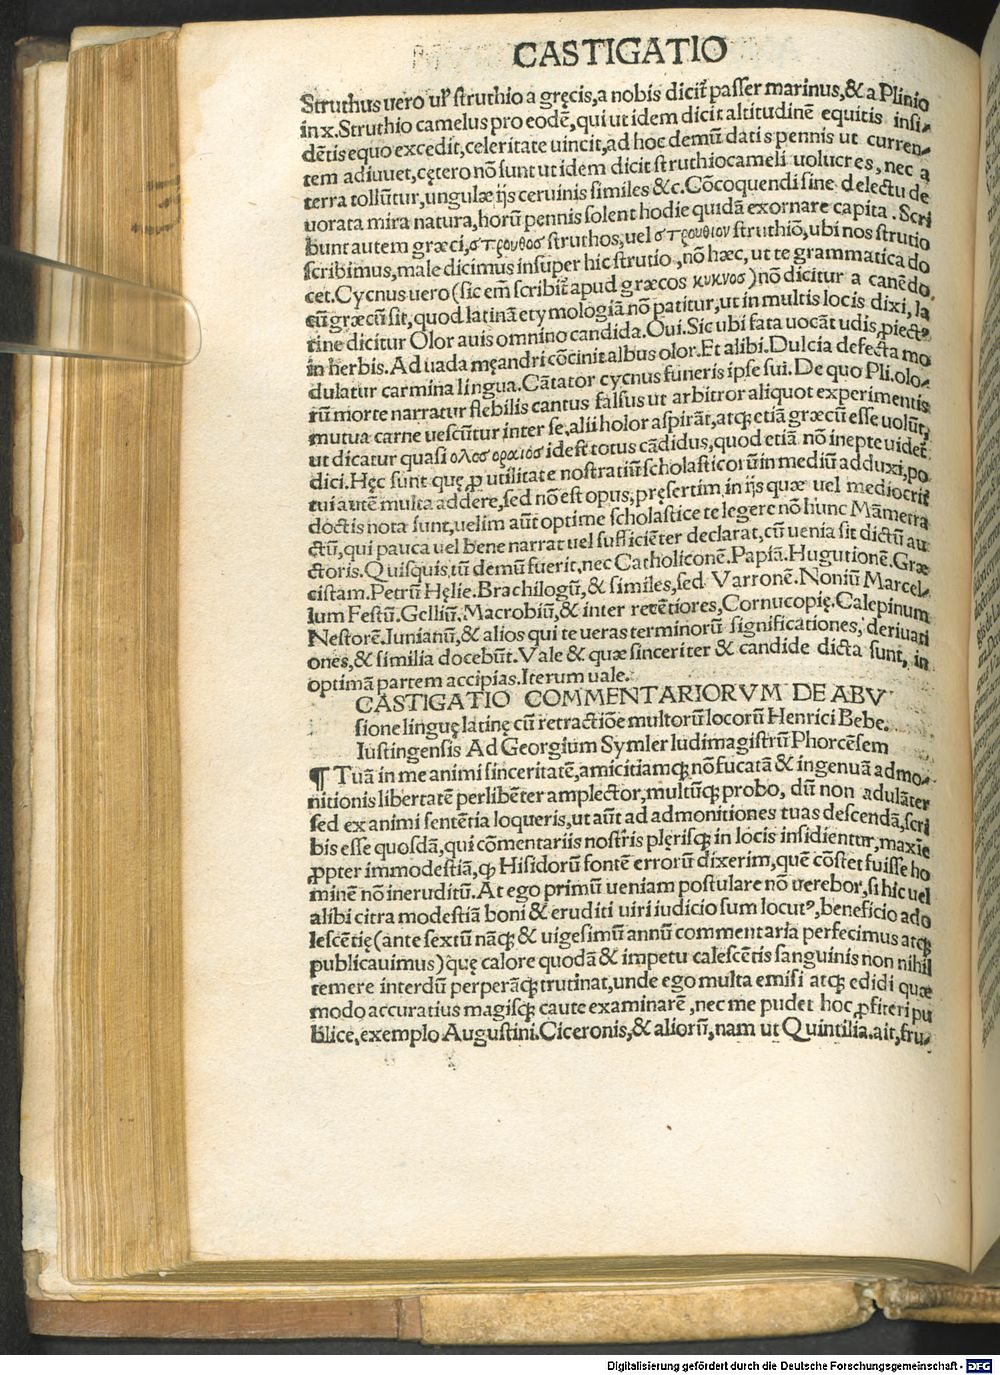 CASTIGATIO
Struthus uero ul' struthio a gręcis, a nobis dicit᷑ passer marinus, & a Plinio
in x. Struthio camelus pro eodē, qui ut idem dicit altitudinē equitis insi⸗
dētis equo excedit, celeritate uincit, ad hoc demū datis pennis ut curren⸗
tem adiuuet, cętero nō sunt ut idem dicit struthiocameli uolucres, nec a
terra tollūtur, ungulæ ijs ceruinis similes &c. Cōcoquendi sine delectu de
uorata mira natura, horū pennis solent hodie quidā exornare capita. Scri
bunt autem græci, στρουθοσ struthos, uel στρουθιον struthiō, ubi nos strutio
scribimus, male dicimus insuper hic strutio, nō hæc, ut te grammatica do
cet. Cycnus uero (sic em̄ scribit᷑ apud græcos κυκνοσ) nō dicitur a canēdo,
cū græcū sit, quod latinā etymologiā nō patitur, ut in multis locis dixi, la
tine dicitur Olor auis omnino candida. Oui. Sic ubi fata uocāt udis, piectꝰ
in herbis. Ad uada męandri cōcinit albus olor. Et alibi. Dulcia defecta mo
dulatur carmina lingua. Cātator cycnus funeris ipse sui. De quo Pli. olo⸗
rū morte narratur flebilis cantus falsus ut arbitror aliquot experimentis
mutua carne uescūtur inter se, alii holor aspirāt, atq; etiā græcū esse uolūt,
ut dicatur quasi ολοσ οραιοσ idest totus cādidus, quod etiā nō inepte uidet᷑
dici. Hęc sunt quę ꝓ utilitate nostratiū scholasticorū in mediū adduxi, po
tui autē multa addere, sed nō est opus, pręsertim in ijs quæ uel mediocrit᷑
doctis nota sunt, uelim aūt optime scholastice te legere nō hunc Māmetra
ctū, qui pauca uel bene narrat uel sufficiēter declarat, cū uenia sit dictū au
ctoris. Quisquis tū demū fuerit, nec Catholiconē. Papiā. Hugutionē. Græ
cistam. Petrū Hęlie. Brachilogū, & similes, sed Varronē. Noniū Marcel⸗
lum Festū. Gelliū. Macrobiū, & inter recētiores, Cornucopię. Calepinum
Nestorē. Iunianū, & alios qui te ueras terminorū significationes, deriuati
ones, & similia docebūt. Vale & quæ sinceriter & candide dicta sunt, in
optimā partem accipias. Iterum uale.
CASTIGATIO COMMENTARIORVM DE ABV
sione linguę latinę cū retractiōe multorū locorū Henrici Bebe.
Iustingensis Ad Georgium Symler ludimagistrū Phorcēsem
¶ Tuā in me animi sinceritatē, amicitiamq; nō fucatā & ingenuā admo⸗
nitionis libertatē perlibēter amplector, multūq; probo, dū non adulāter
sed ex animi sentētia loqueris, ut aūt ad admonitiones tuas descendā, scri
bis esse quosdā, qui cōmentariis nostris plęrisq; in locis insidientur, maxīe
ꝓpter immodestiā, q Hisidorū fontē errorū dixerim, quē cōstet fuisse ho
minē nō ineruditū. At ego primū ueniam postulare nō uerebor, si hic uel
alibi citra modestiā boni & eruditi uiri iudicio sum locutꝰ, beneficio ado
lescētię (ante sextū nāq; & uigesimū annū commentaria perfecimus atq;
publicauimus) quę calore quodā & impetu calescētis sanguinis non nihil
temere interdū perperāq; trutinat, unde ego multa emisi atq; edidi quæ
modo accuratius magisq; caute examinarē, nec me pudet hoc ꝓfiteri pu
blice, exemplo Augustini. Ciceronis, & aliorū, nam ut Quintilia. ait, fru⸗
Digitalisierung gefördert durch die Deutsche Forschungsgemeinschaft - DFG